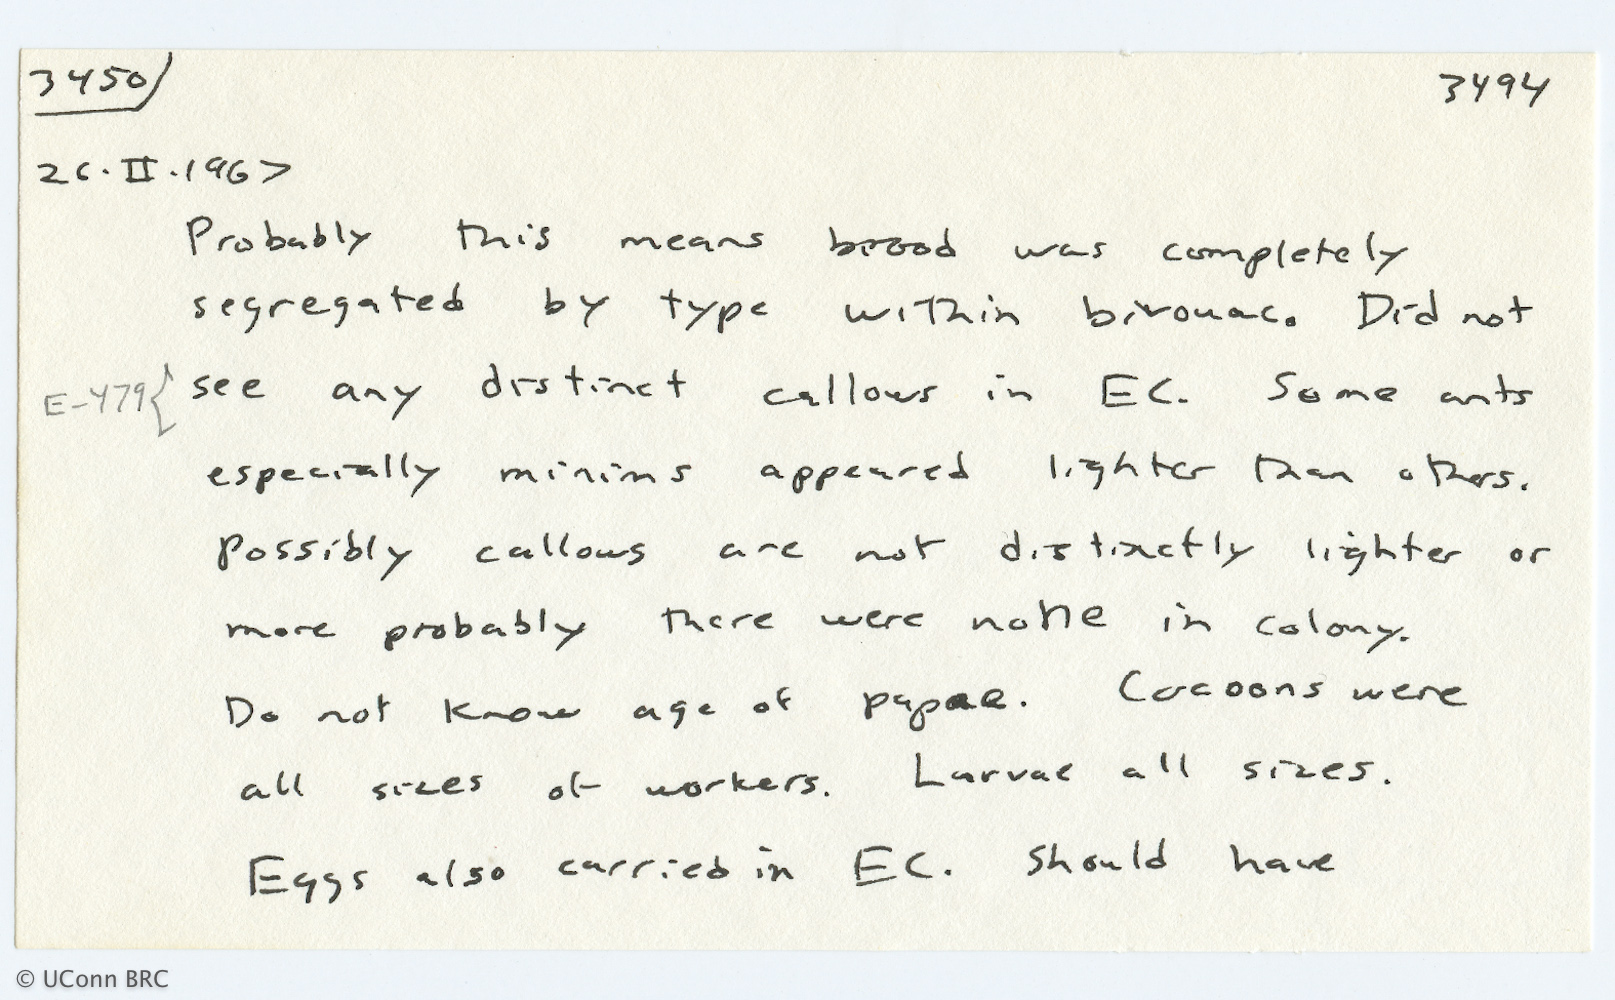 3450 3494
26.II.1967
Probably this means brood was completely
segregated by type within bivouac. Did not
E-479{ see any distinct callows in EC. Some ants
especially minims appeared lighter than others.
Possibly callows are not distinctly lighter or
more probably there were none in colony.
Do not know age of pupae. Cocoons were
all sizes of workers. Larvae all sizes.
Eggs also carried in EC. Should have
© UConn BRC